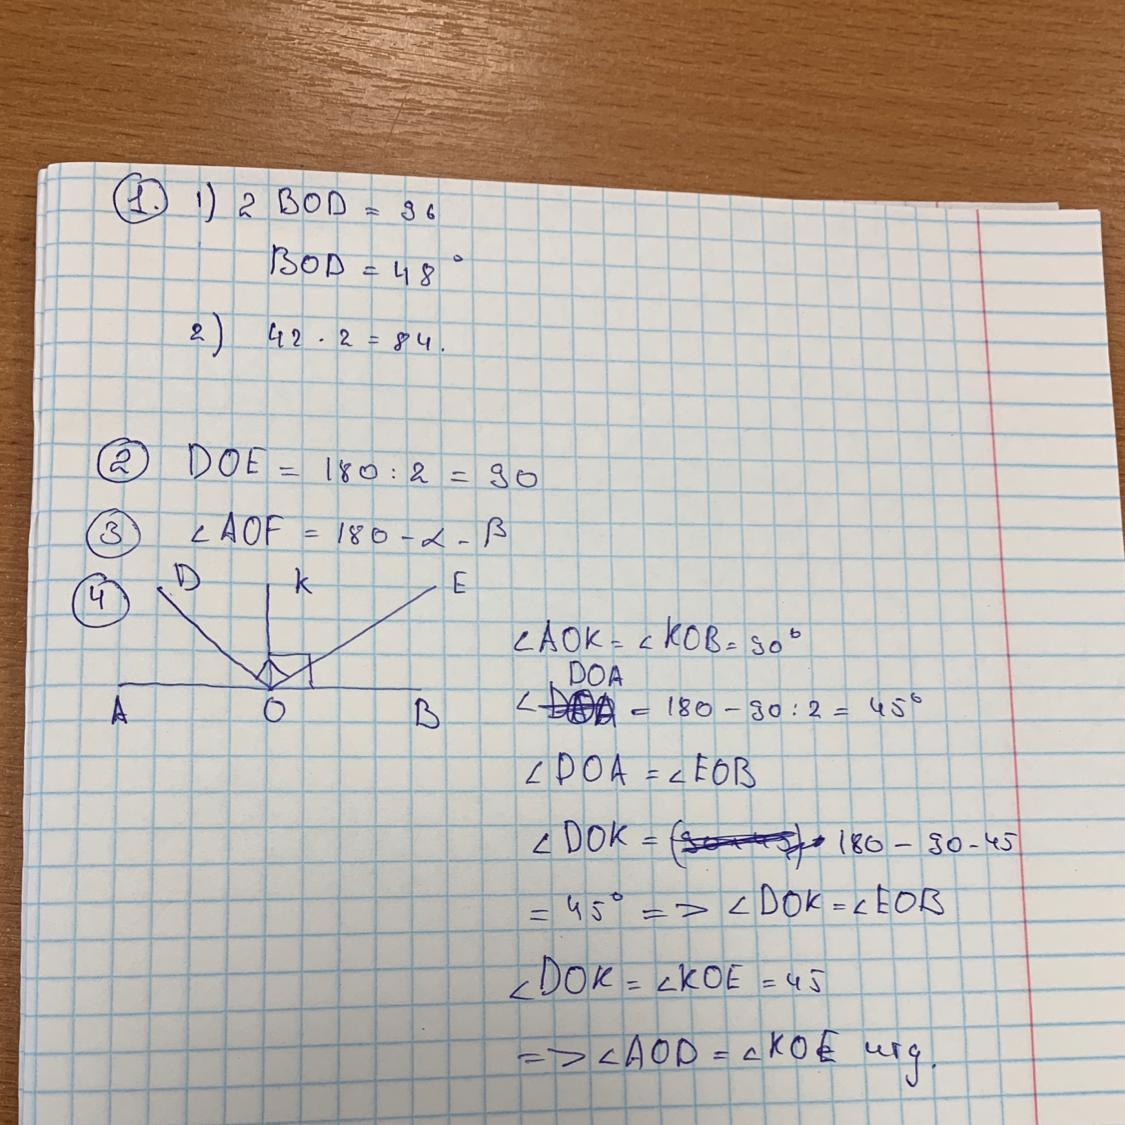 1. 1) 2 BOD = 96
BOD = 48°
2) 42 · 2 = 84.
2 DOE = 180 : 2 = 90
3 ∠AOF = 180 - α - β
4
D K E
A O B
∠AOK = ∠KOB = 90°
∠DOA = 180 - 90 : 2 = 45°
∠DOA = ∠EOB
∠DOK = 180 - 90 - 45
= 45° => ∠DOK = ∠EOB
∠DOK = ∠KOE = 45
=> ∠AOD = ∠KOE чтд.